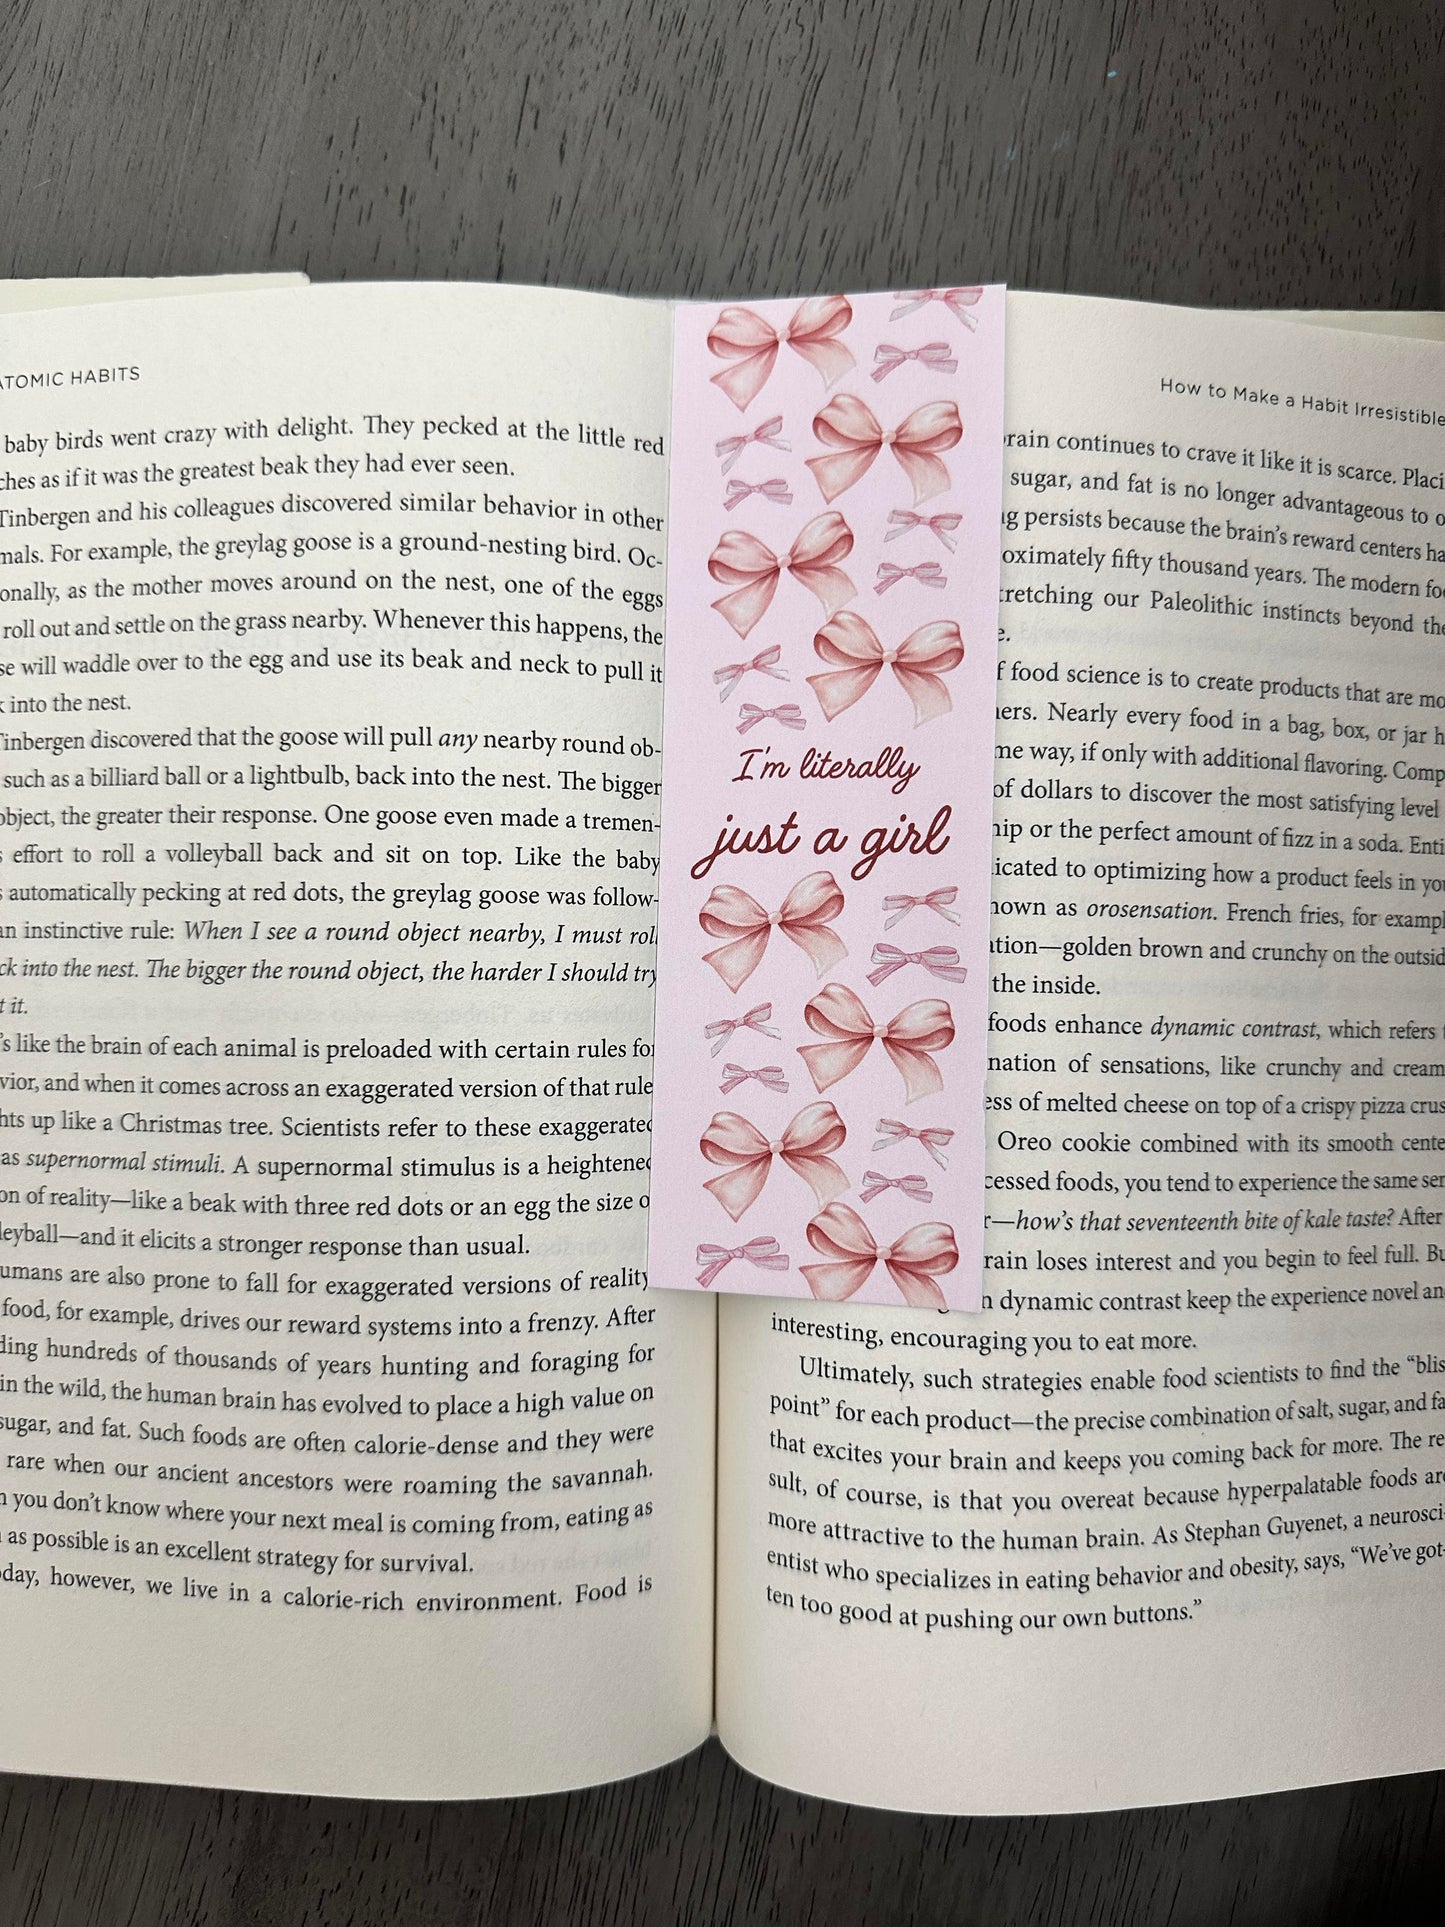 ATOMIC HABITS
baby birds went crazy with delight. They pecked at the little red
as if it was the greatest beak they had ever seen.
Tinbergen and his colleagues discovered similar behavior in other
For example, the greylag goose is a ground-nesting bird. Oc-
as the mother moves around on the nest, one of the eggs
roll out and settle on the grass nearby. Whenever this happens, the
will waddle over to the egg and use its beak and neck to pull it
into the nest.
Tinbergen discovered that the goose will pull any nearby round ob-
such as a billiard ball or a lightbulb, back into the nest. The bigger
object, the greater their response. One goose even made a tremen-
effort to roll a volleyball back and sit on top. Like the baby
automatically pecking at red dots, the greylag goose was follow-
an instinctive rule: When I see a round object nearby, I must roll
into the nest. The bigger the round object, the harder I should try
it.
like the brain of each animal is preloaded with certain rules for
and when it comes across an exaggerated version of that rule
up like a Christmas tree. Scientists refer to these exaggerated
as supernormal stimuli. A supernormal stimulus is a heightened
of reality—like a beak with three red dots or an egg the size o
and it elicits a stronger response than usual.
umans are also prone to fall for exaggerated versions of reality
food, for example, drives our reward systems into a frenzy. After
hundreds of thousands of years hunting and foraging for
in the wild, the human brain has evolved to place a high value on
sugar, and fat. Such foods are often calorie-dense and they were
rare when our ancient ancestors were roaming the savannah.
you don't know where your next meal is coming from, eating as
as possible is an excellent strategy for survival.
however, we live in a calorie-rich environment. Food is
I'm literally
just a girl
How to Make a Habit Irresistible
brain continues to crave it like it is scarce. Placi
sugar, and fat is no longer advantageous to o
persists because the brain's reward centers ha
oximately fifty thousand years. The modern foo
tretching our Paleolithic instincts beyond the
e.
f food science is to create products that are mo
ers. Nearly every food in a bag, box, or jar h
me way, if only with additional flavoring. Comp
of dollars to discover the most satisfying level
hip or the perfect amount of fizz in a soda. Enti
icated to optimizing how a product feels in you
nown as orosensation. French fries, for exampl
ation—golden brown and crunchy on the outsid
the inside.
foods enhance dynamic contrast, which refers t
nation of sensations, like crunchy and cream
ess of melted cheese on top of a crispy pizza crus
Oreo cookie combined with its smooth cente
cessed foods, you tend to experience the same sen
r—how's that seventeenth bite of kale taste? After
rain loses interest and you begin to feel full. Bu
n dynamic contrast keep the experience novel an
interesting, encouraging you to eat more.
Ultimately, such strategies enable food scientists to find the “blis
point” for each product—the precise combination of salt, sugar, and fa
that excites your brain and keeps you coming back for more. The re
sult, of course, is that you overeat because hyperpalatable foods are
more attractive to the human brain. As Stephan Guyenet, a neurosci-
entist who specializes in eating behavior and obesity, says, “We've got-
ten too good at pushing our own buttons.”